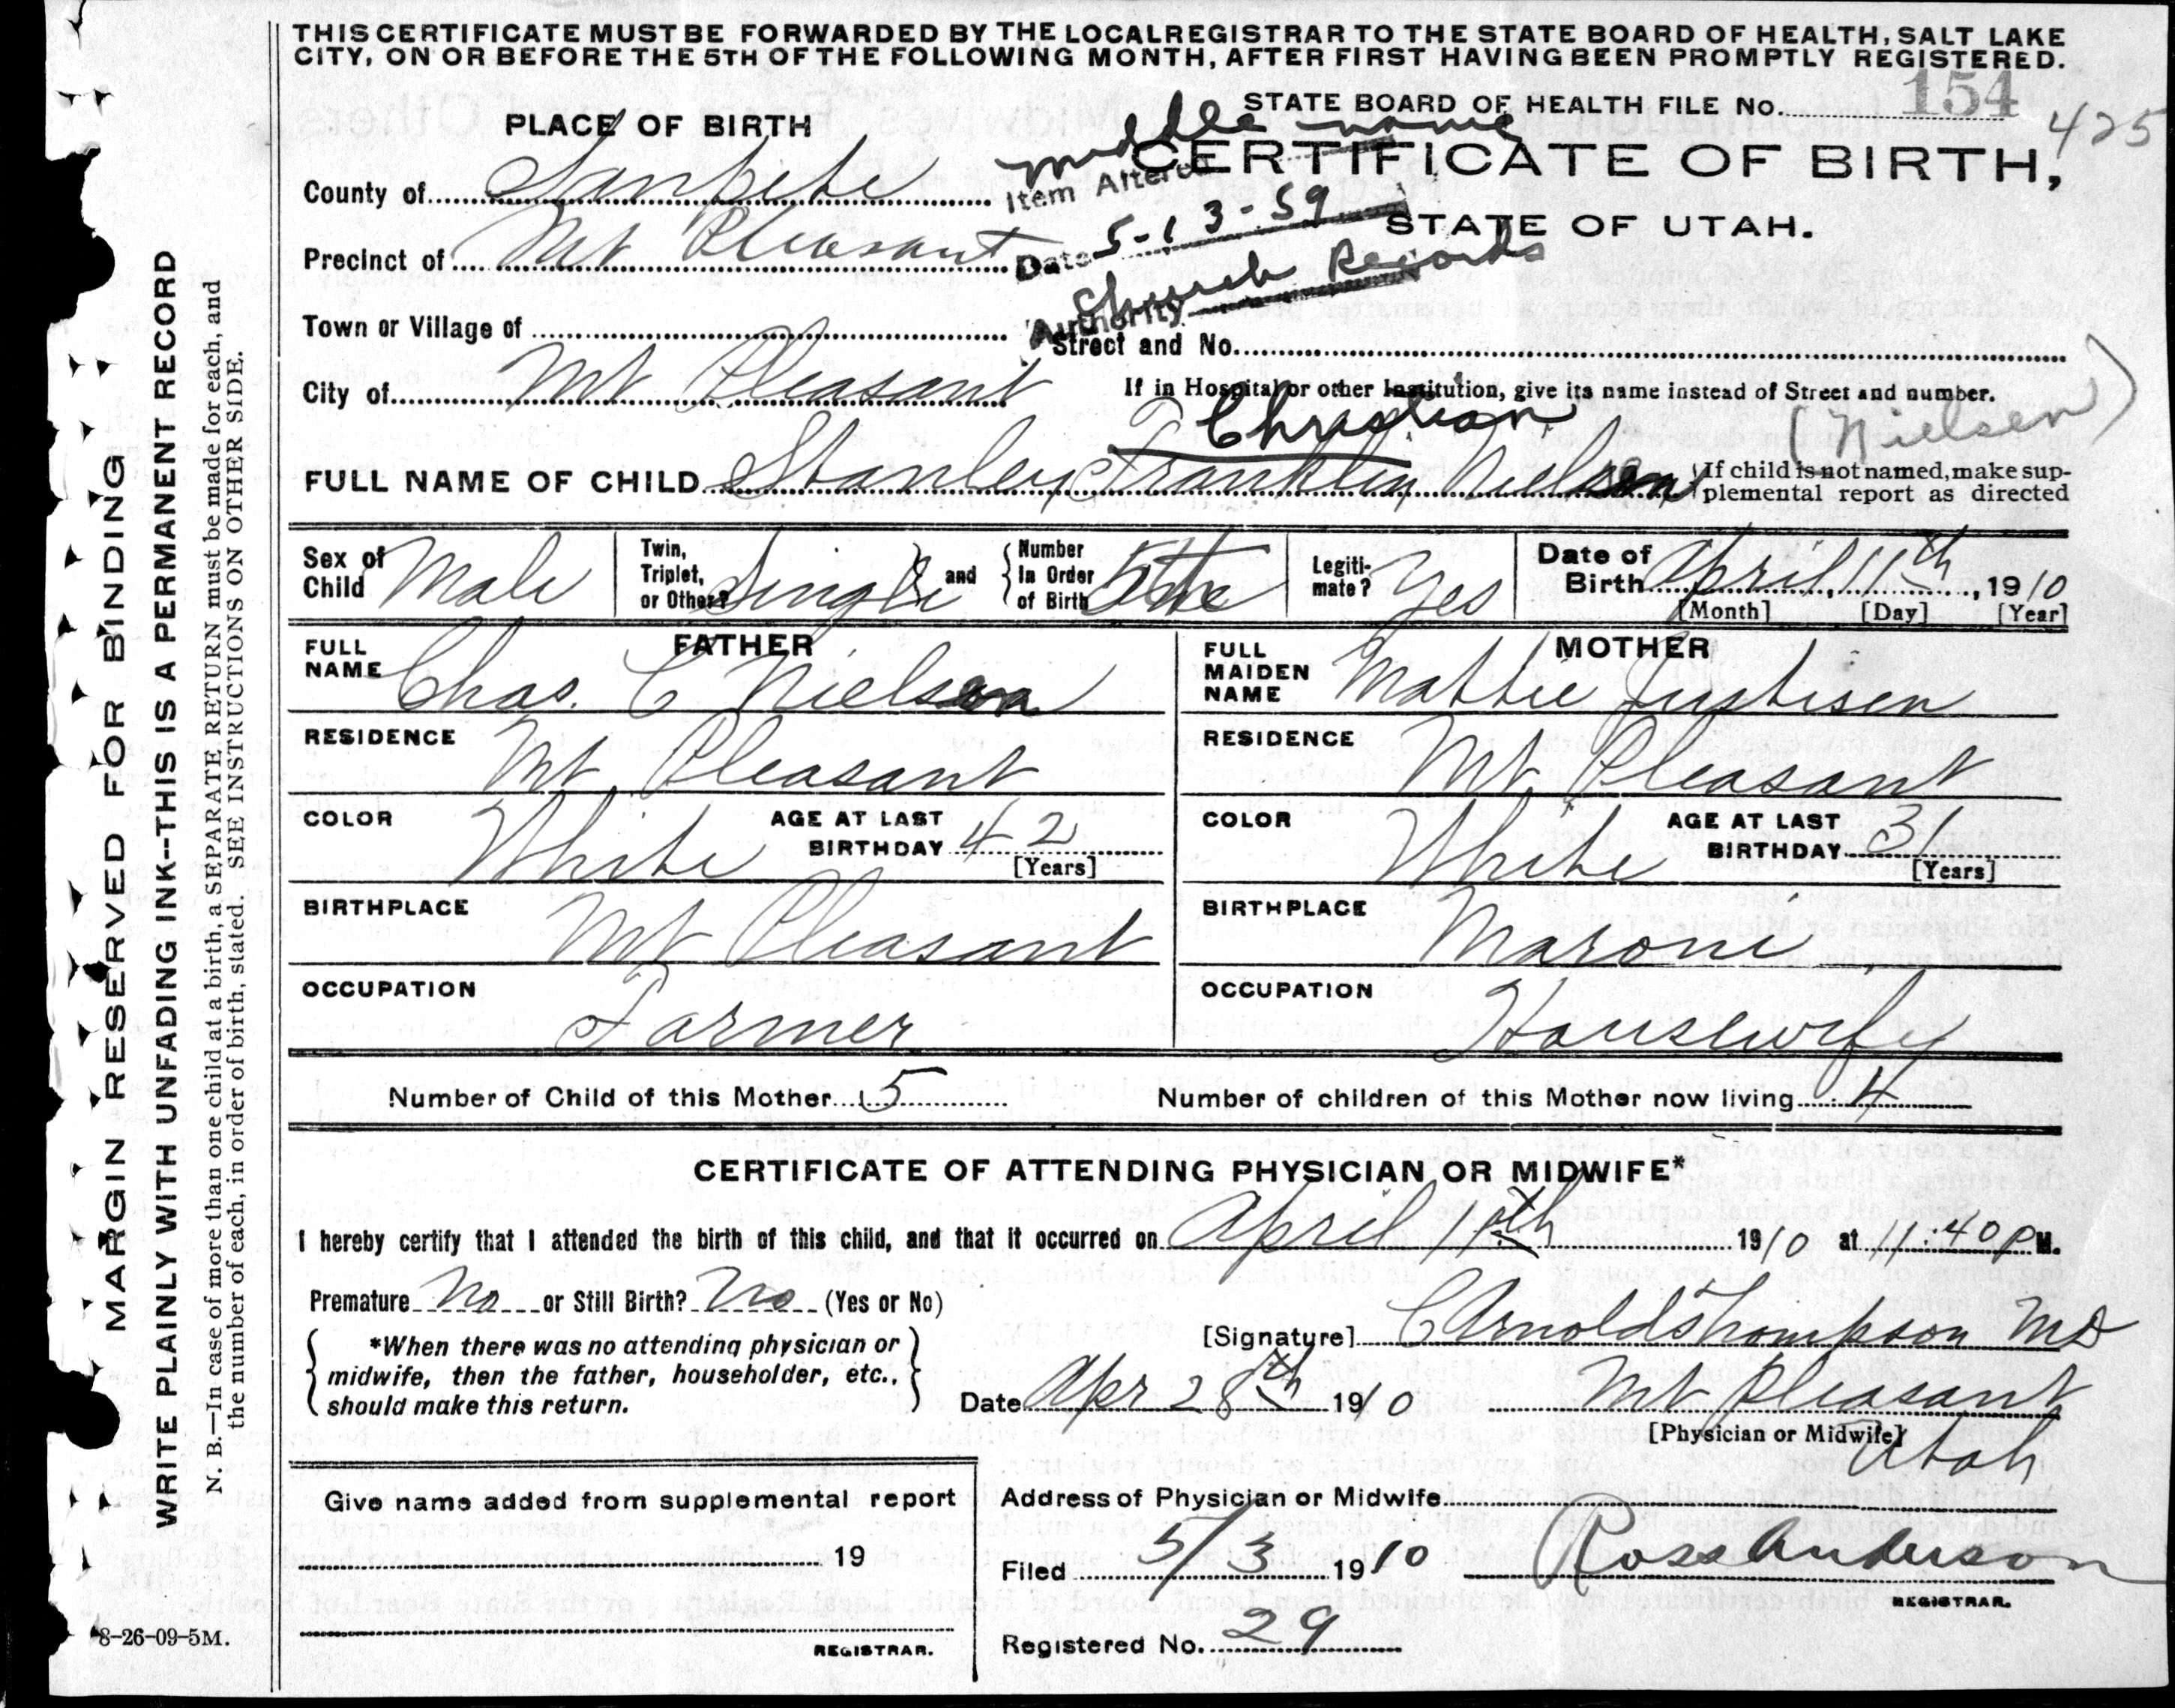 THIS CERTIFICATE MUST BE FORWARDED BY THE LOCAL REGISTRAR TO THE STATE BOARD OF HEALTH, SALT LAKE
CITY, ON OR BEFORE THE 5TH OF THE FOLLOWING MONTH, AFTER FIRST HAVING BEEN PROMPTLY REGISTERED.
STATE BOARD OF HEALTH FILE No. 154
425
PLACE OF BIRTH
middle name
CERTIFICATE OF BIRTH,
County of Sanpete
Item Altered
5-13-59
STATE OF UTAH.
Precinct of Mt Pleasant
Date
Church Records
Town or Village of
Authority
Street and No.
City of Mt Pleasant
If in Hospital or other Institution, give its name instead of Street and number.
Christian
(Nielsen)
FULL NAME OF CHILD Stanley Franklin Nielsen
If child is not named, make sup-
plemental report as directed
Sex of Child Male
Twin, Triplet, or Other? Single
and Number In Order of Birth 5th
Legiti-mate? Yes
Date of Birth April, 11th, 1910
[Month] [Day] [Year]
FATHER
FULL NAME Chas. C Nielsen
RESIDENCE Mt Pleasant
COLOR White AGE AT LAST BIRTHDAY 42 [Years]
BIRTHPLACE Mt Pleasant
OCCUPATION Farmer
MOTHER
FULL MAIDEN NAME Mattie Justisen
RESIDENCE Mt Pleasant
COLOR White AGE AT LAST BIRTHDAY 31 [Years]
BIRTHPLACE Maroni
OCCUPATION Housewife
Number of Child of this Mother 5 Number of children of this Mother now living 4
CERTIFICATE OF ATTENDING PHYSICIAN OR MIDWIFE*
I hereby certify that I attended the birth of this child, and that it occurred on April 11th 1910 at 11:40 P M.
Premature No or Still Birth? No (Yes or No)
*When there was no attending physician or
midwife, then the father, householder, etc.,
should make this return.
[Signature] C Arnold Thompson MD
Date Apr 28th 1910 Mt Pleasant
[Physician or Midwife]
Utah
Give name added from supplemental report
19
REGISTRAR.
Address of Physician or Midwife
Filed 5/3 1910 Ross Anderson
REGISTRAR.
Registered No. 29
8-26-09-5M.
MARGIN RESERVED FOR BINDING
WRITE PLAINLY WITH UNFADING INK--THIS IS A PERMANENT RECORD
N. B.—In case of more than one child at a birth, a SEPARATE RETURN must be made for each, and
the number of each, in order of birth, stated. SEE INSTRUCTIONS ON OTHER SIDE.